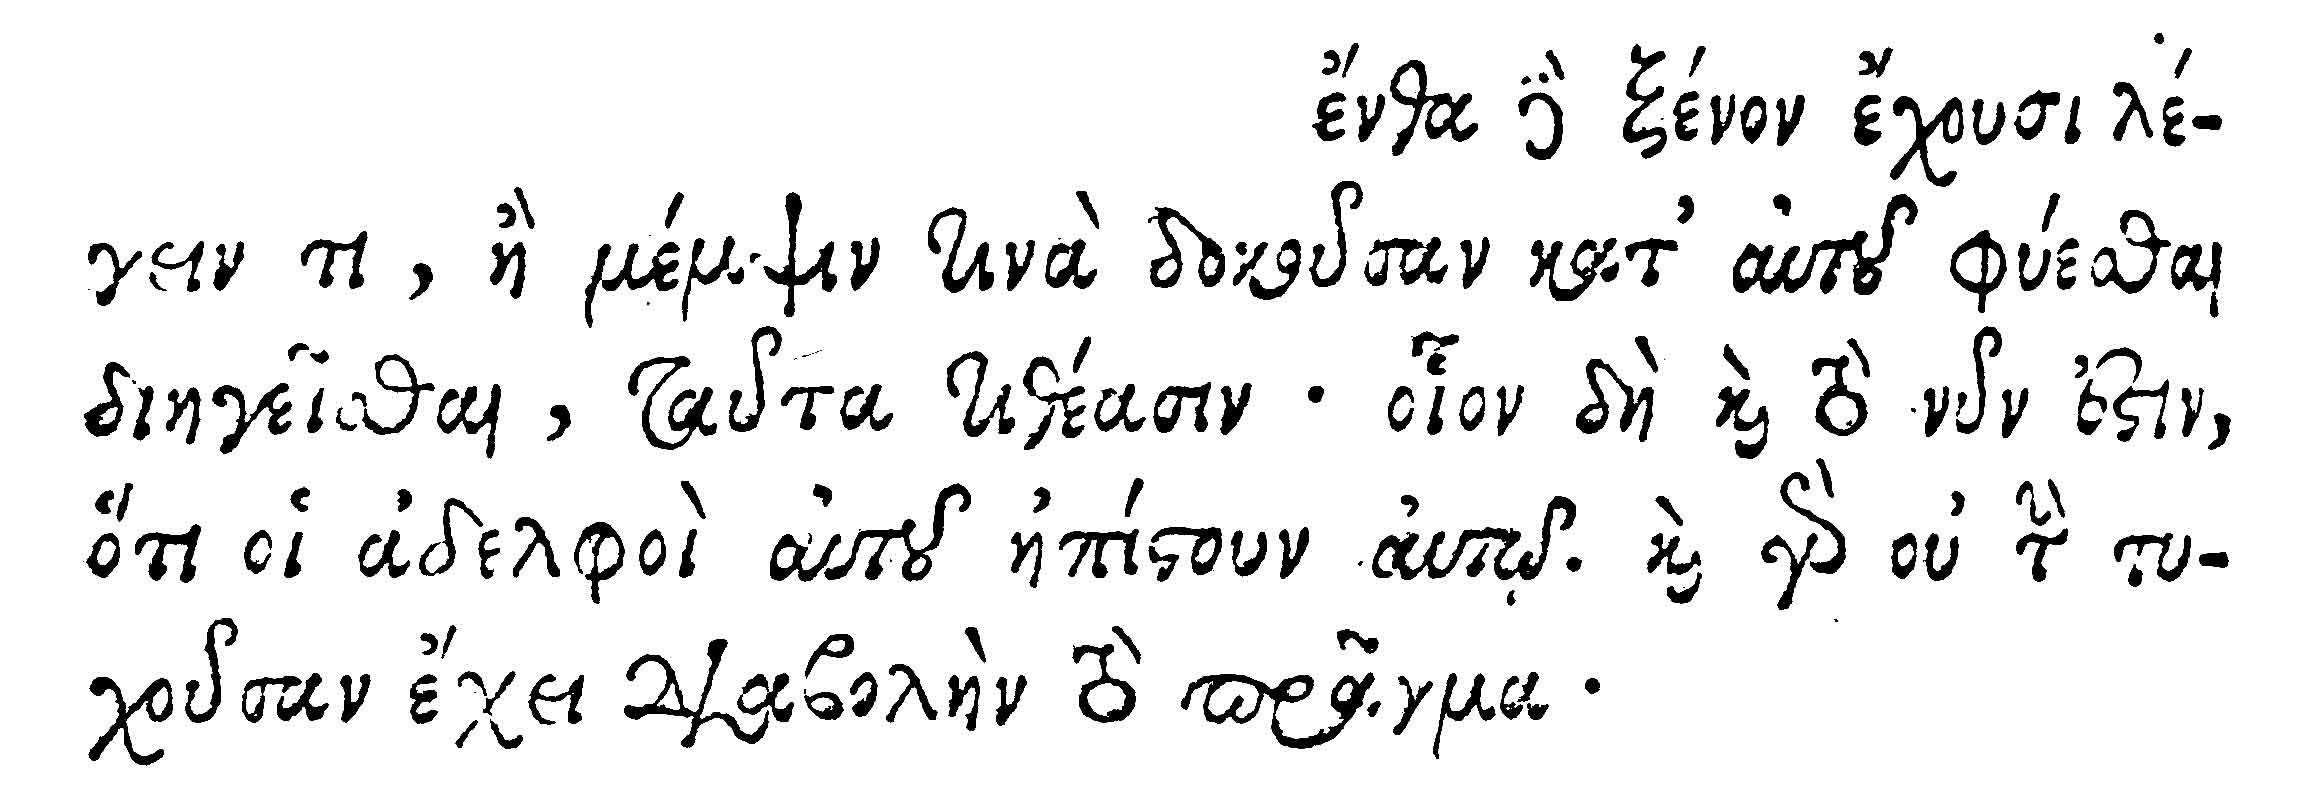 ἔνθα δὲ ξένον ἔχουσι λέ-
γειν τι, ἢ μέμψιν τινὰ δοκοῦσαν κατ’ αὐτοῦ φύεσθαι
διηγεῖσθαι, ταῦτα τιθέασιν· οἷον δὴ καὶ τὸ νῦν ἐστιν,
ὅτι οἱ ἀδελφοὶ αὐτοῦ ἠπίστουν αὐτῷ. καὶ γὰρ οὐ τὴν τυ-
χοῦσαν ἔχει διαβολὴν τὸ πρᾶγμα.